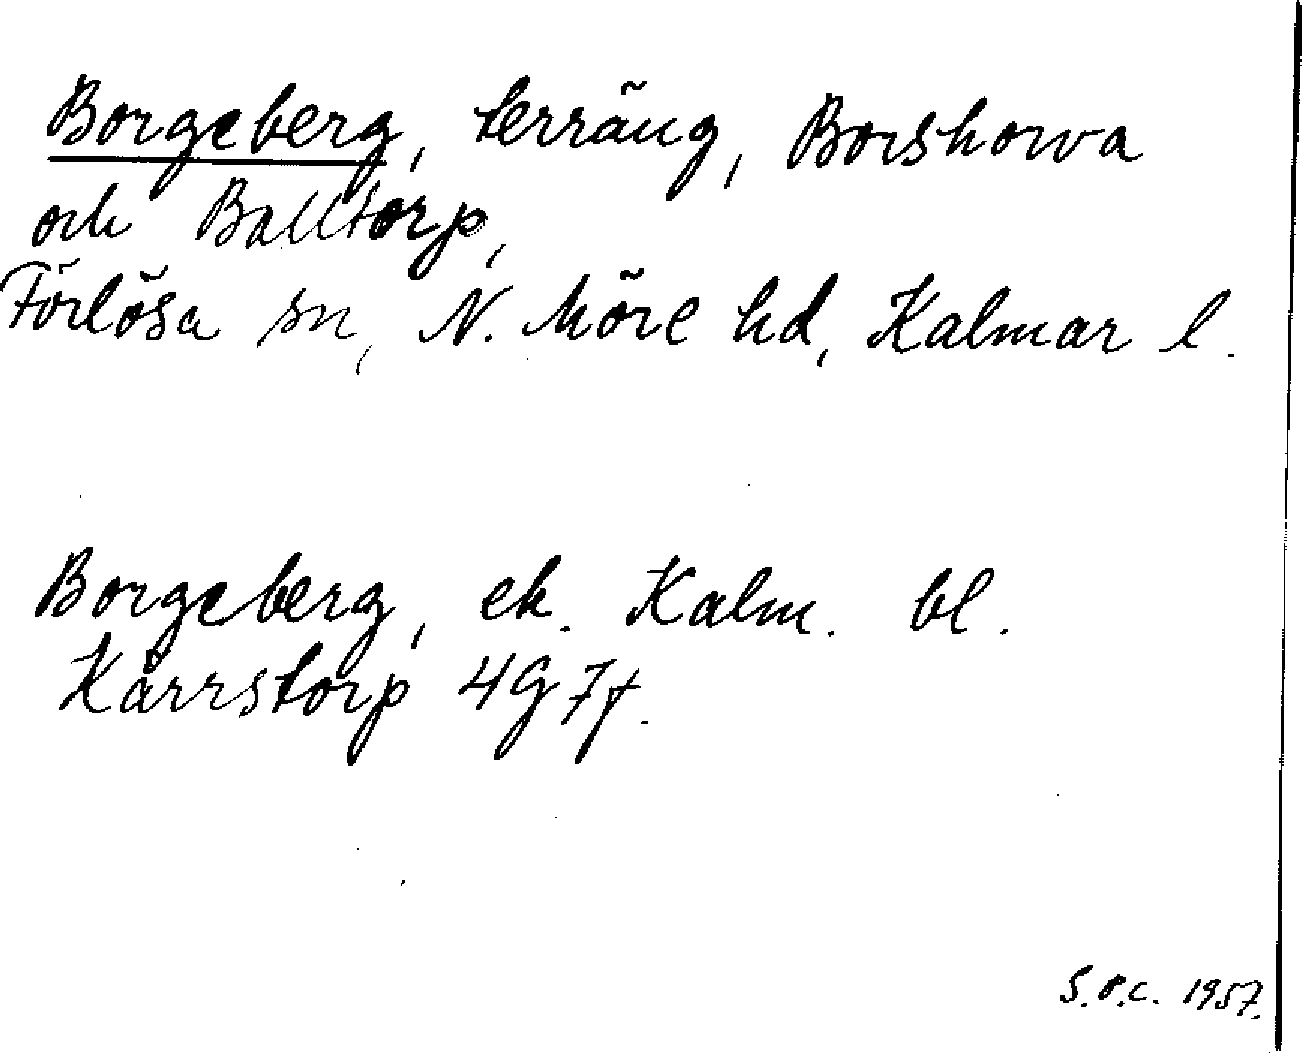 Borgeberg, terräng, Borshorva
och Balltorp,
Förlösa sn, N. Möre hd, Kalmar l.
Borgeberg, ek. Kalm. bl.
Kärrstorp 4G7f.
S.P.C. 1957.